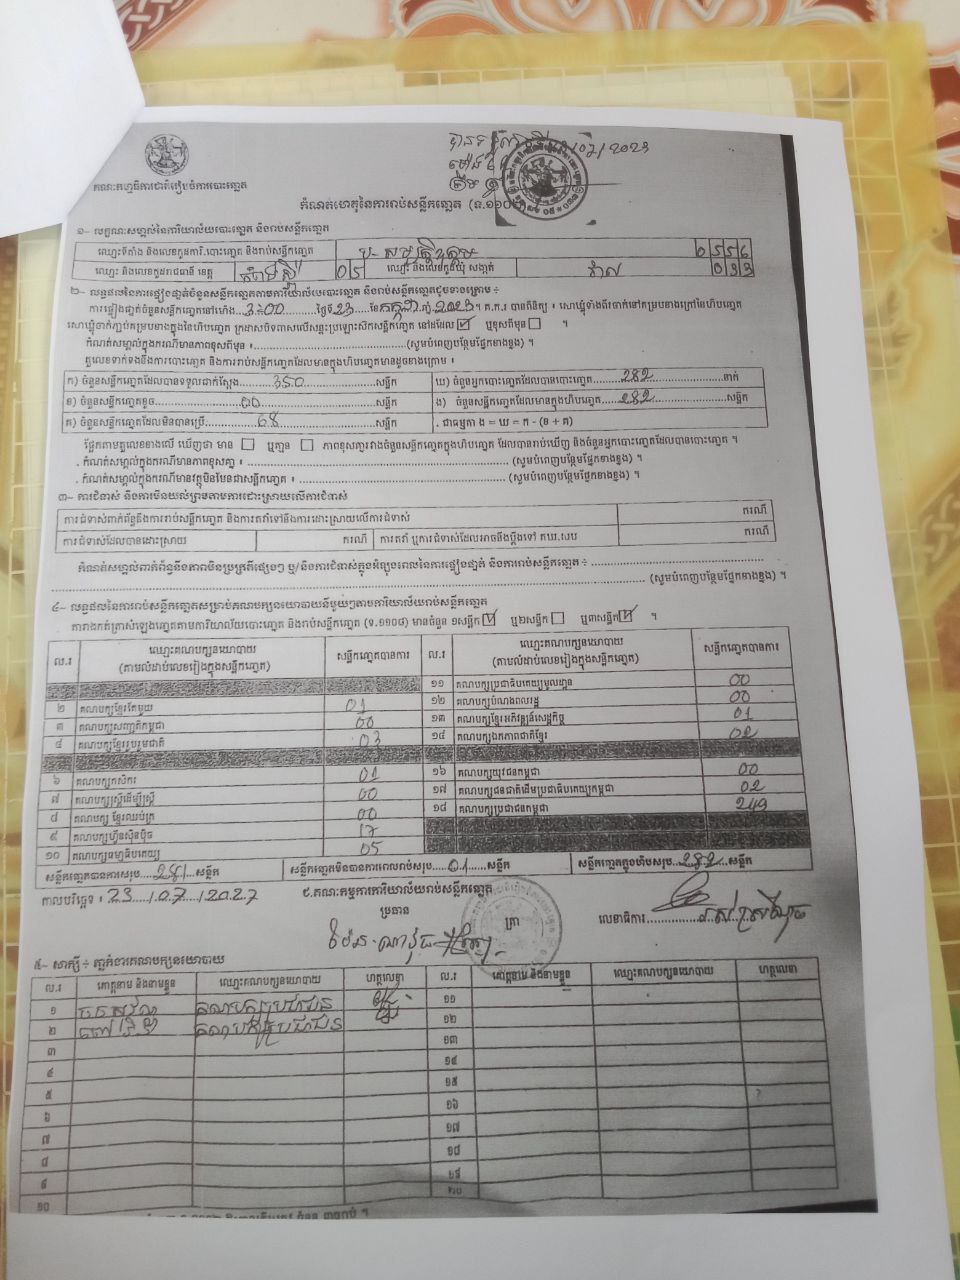 គណៈកម្មាធិការជាតិរៀបចំការបោះឆ្នោត
កំណត់ហេតុនៃការរាប់សន្លឹកឆ្នោត (ទ.១១០២)
១- លក្ខណៈសម្គាល់នៃការិយាល័យបោះឆ្នោត និងរាប់សន្លឹកឆ្នោត
ឈ្មោះទីតាំង និងលេខកូដការិ.បោះឆ្នោត និងរាប់សន្លឹកឆ្នោត
ឈ្មោះ និងលេខកូដរាជធានី ខេត្ត កំពង់ស្ពឺ 05 ឈ្មោះ និងលេខកូដឃុំ សង្កាត់
២- លទ្ធផលនៃការផ្ទៀងផ្ទាត់ចំនួនសន្លឹកឆ្នោតតាមការិយាល័យបោះឆ្នោត និងរាប់សន្លឹកឆ្នោតដូចខាងក្រោម ÷
ការផ្ទៀងផ្ទាត់ចំនួនសន្លឹកឆ្នោតនៅម៉ោង 3:00 ថ្ងៃទី 23 ខែ កក្កដា ឆ្នាំ 2023 ។ គ.ក.រ បានពិនិត្យ ៖ សោឃ្លុំទាំងពីរចាក់នៅគម្របខាងក្រៅនៃហិបឆ្នោត
សោឃ្លុំចាក់ភ្ជាប់គម្របខាងក្នុងនៃហិបឆ្នោត ក្រដាសបិទពាសលើសន្ទះប្រឡោះសៀកសន្លឹកឆ្នោត នៅដដែល ☑ ឬខុសពីមុន ☐ ។
កំណត់សម្គាល់ក្នុងករណីមានភាពខុសពីមុន ៖ (សូមបំពេញបន្ថែមផ្នែកខាងខ្នង) ។
តួលេខទាក់ទងនឹងការបោះឆ្នោត និងការរាប់សន្លឹកឆ្នោតដែលមានក្នុងហិបឆ្នោតមានដូចខាងក្រោម ៖
ក) ចំនួនសន្លឹកឆ្នោតដែលបានទទួលជាក់ស្តែង 350 សន្លឹក ឃ) ចំនួនអ្នកបោះឆ្នោតដែលបានបោះឆ្នោត 282 នាក់
ខ) ចំនួនសន្លឹកឆ្នោតខូច 00 សន្លឹក ង) ចំនួនសន្លឹកឆ្នោតដែលមានក្នុងហិបឆ្នោត 282 សន្លឹក
គ) ចំនួនសន្លឹកឆ្នោតដែលមិនបានប្រើ 68 សន្លឹក . ជាធម្មតា ង = ឃ = ក - (ខ + គ)
ផ្អែកតាមតួលេខខាងលើ ឃើញថា មាន ☐ ឬគ្មាន ☐ ភាពខុសគ្នារវាងចំនួនសន្លឹកឆ្នោតក្នុងហិបឆ្នោត ដែលបានរាប់ឃើញ និងចំនួនអ្នកបោះឆ្នោតដែលបានបោះឆ្នោត ។
. កំណត់សម្គាល់ក្នុងករណីមានភាពខុសគ្នា ៖ (សូមបំពេញបន្ថែមផ្នែកខាងខ្នង) ។
. កំណត់សម្គាល់ក្នុងករណីមានវត្ថុមិនមែនជាសន្លឹកឆ្នោត ៖ (សូមបំពេញបន្ថែមផ្នែកខាងខ្នង) ។
៣- ការជំទាស់ និងការមិនយល់ព្រមតាមការដោះស្រាយលើការជំទាស់
ការជំទាស់ពាក់ព័ន្ធនឹងការរាប់សន្លឹកឆ្នោត និងការតវ៉ាទៅនឹងការដោះស្រាយលើការជំទាស់ ករណី
ការជំទាស់ដែលបានដោះស្រាយ ករណី ការតវ៉ា ឬការជំទាស់ដែលអាចនឹងប្តឹងទៅ គឃ.សប ករណី
កំណត់សម្គាល់ពាក់ព័ន្ធនឹងភាពមិនប្រក្រតីផ្សេងៗ ឬ/និងការជំទាស់ក្នុងអំឡុងពេលនៃការផ្ទៀងផ្ទាត់ និងការរាប់សន្លឹកឆ្នោត ÷
(សូមបំពេញបន្ថែមផ្នែកខាងខ្នង) ។
៤- លទ្ធផលនៃការរាប់សន្លឹកឆ្នោតសម្រាប់គណបក្សនយោបាយនីមួយៗតាមការិយាល័យរាប់សន្លឹកឆ្នោត
តារាងកត់ត្រាសំឡេងឆ្នោតតាមការិយាល័យបោះឆ្នោត និងរាប់សន្លឹកឆ្នោត (ទ.១១០៨) មានចំនួន ១សន្លឹក ☑ ឬ២សន្លឹក ☐ ឬ៣សន្លឹក ☑ ។
ល.រ ឈ្មោះគណបក្សនយោបាយ (តាមលំដាប់លេខរៀងក្នុងសន្លឹកឆ្នោត) សន្លឹកឆ្នោតបានការ ល.រ ឈ្មោះគណបក្សនយោបាយ (តាមលំដាប់លេខរៀងក្នុងសន្លឹកឆ្នោត) សន្លឹកឆ្នោតបានការ
១១ គណបក្សប្រជាធិបតេយ្យមូលដ្ឋាន 00
២ គណបក្សខ្មែរតែមួយ 01 ១២ គណបក្សបំណងពលរដ្ឋ 00
៣ គណបក្សសញ្ជាតិកម្ពុជា 00 ១៣ គណបក្សខ្មែរអភិវឌ្ឍន៍សេដ្ឋកិច្ច 01
៤ គណបក្សខ្មែររួបរួមជាតិ 03 ១៤ គណបក្សឯកភាពជាតិខ្មែរ
៦ គណបក្សកសិករ ១៦ គណបក្សយុវជនកម្ពុជា 00
៧ គណបក្សស្ត្រីដើម្បីស្ត្រី 00 ១៧ គណបក្សជនជាតិដើមប្រជាធិបតេយ្យកម្ពុជា 02
៨ គណបក្ស ខ្មែរឈប់ក្រ 00 ១៨ គណបក្សប្រជាជនកម្ពុជា 249
៩ គណបក្សហ្វ៊ុនស៊ិនប៉ិច 17
១០ គណបក្សធម្មាធិបតេយ្យ 05
សន្លឹកឆ្នោតបានការសរុប 281 សន្លឹក សន្លឹកឆ្នោតមិនបានការពេលរាប់សរុប 01 សន្លឹក សន្លឹកឆ្នោតក្នុងហិបសរុប 282 សន្លឹក
កាលបរិច្ឆេទ ៖ 23/07/2023 ជ.គណៈកម្មការការិយាល័យរាប់សន្លឹកឆ្នោត
ប្រធាន ត្រា លេខាធិការ
៥- សាក្សី ÷ ភ្នាក់ងារគណបក្សនយោបាយ
ល.រ គោត្តនាម និងនាមខ្លួន ឈ្មោះគណបក្សនយោបាយ ហត្ថលេខា ល.រ គោត្តនាម និងនាមខ្លួន ឈ្មោះគណបក្សនយោបាយ ហត្ថលេខា
១ គណបក្សប្រជាជន ១១
២ គណបក្សប្រជាជន ១២
៣ ១៣
៤ ១៤
៥ ១៥
៦ ១៦
៧ ១៧
៨ ១៨
៩ ១៩
១០ ២០